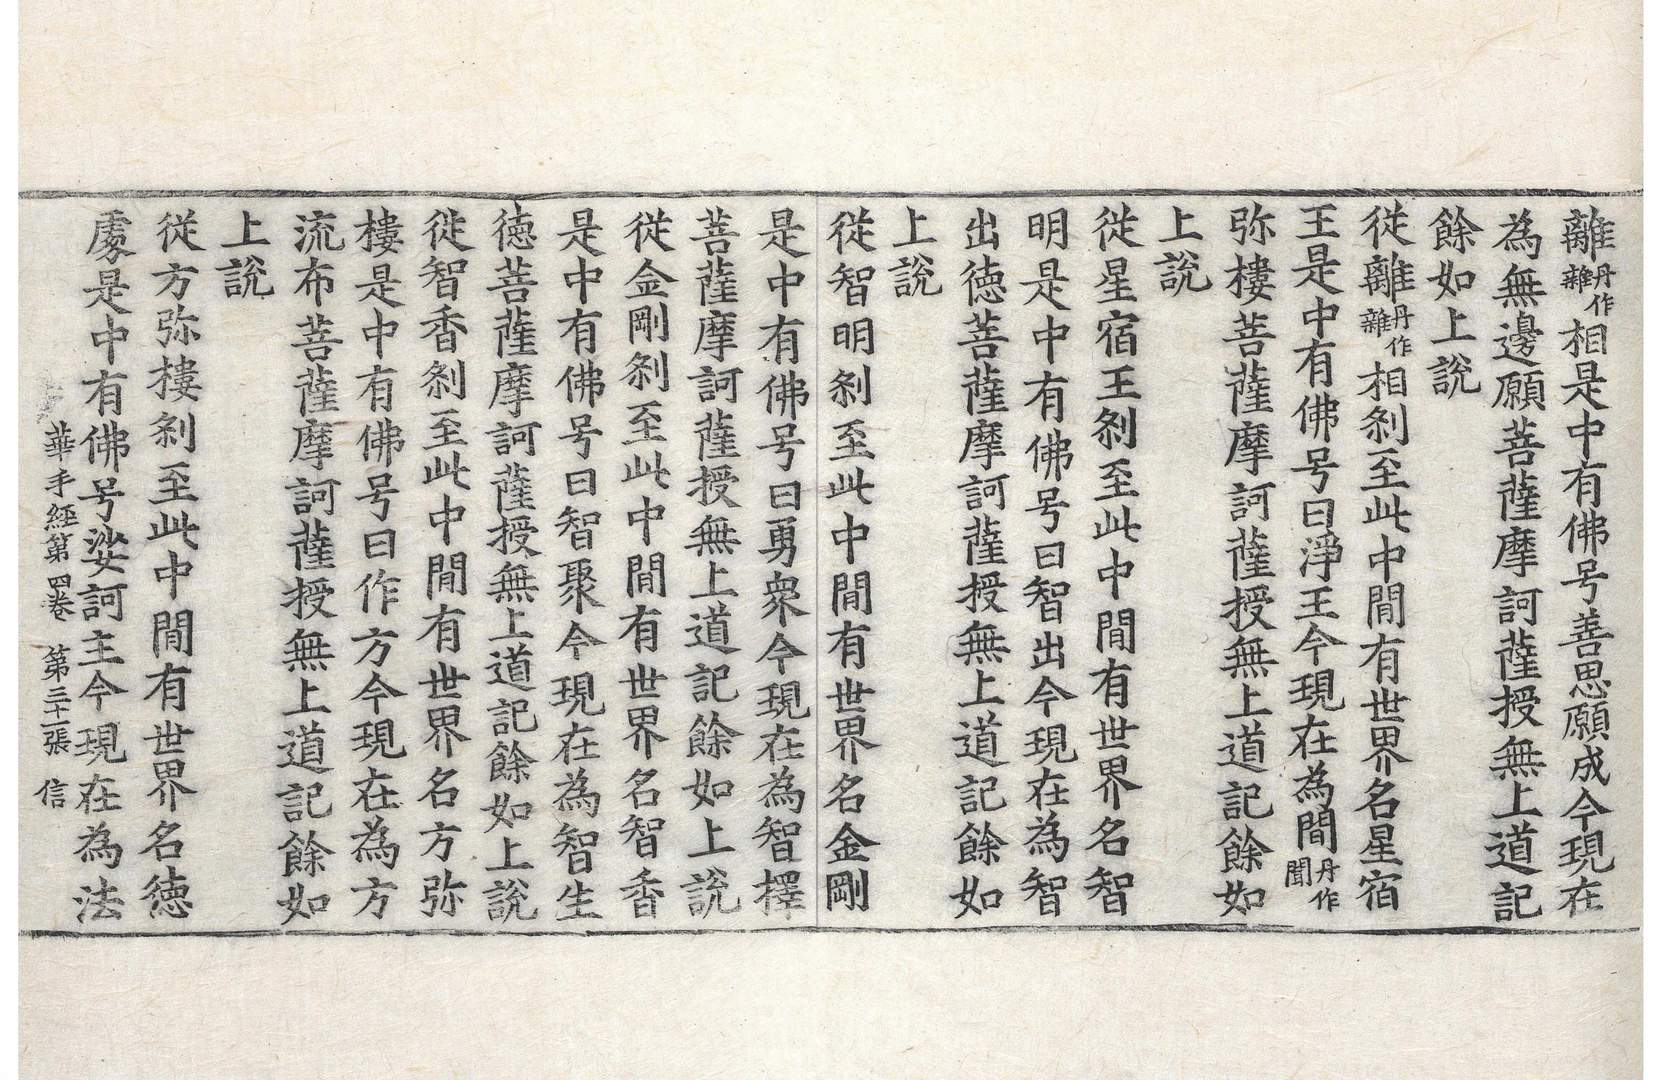 離丹作雜相是中有佛号善思願成今現在
為無邊願菩薩摩訶薩授無上道記
餘如上說
従離丹作雜相刹至此中間有世界名星宿
王是中有佛号曰淨王今現在為間丹作聞
弥樓菩薩摩訶薩授無上道記餘如
上說
従星宿王刹至此中間有世界名智
明是中有佛号曰智出今現在為智
出徳菩薩摩訶薩授無上道記餘如
上說
従智明刹至此中間有世界名金剛
是中有佛号曰勇衆今現在為智擇
菩薩摩訶薩授無上道記餘如上說
従金剛刹至此中間有世界名智香
是中有佛号曰智聚今現在為智生
徳菩薩摩訶薩授無上道記餘如上說
従智香刹至此中間有世界名方弥
樓是中有佛号曰作方今現在為方
流布菩薩摩訶薩授無上道記餘如
上說
従方弥樓刹至此中間有世界名徳
處是中有佛号娑訶主今現在為法
華手経第四卷　第三十張　信